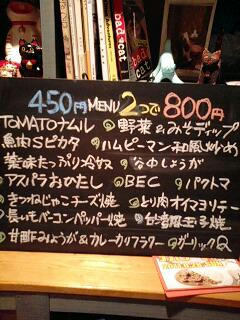 bad cat
450円 MENU 2つで 800円
TOMATOナムル ◎野菜&みそディップ
魚肉Sピカタ ◎ハムピーマン和風炒め
薬味たっぷり冷ヤッ ◎なやしょうが
アスパラおかたし ◎BEC ◎パクトマ
きつねじゃこチーズ焼 ◎とり肉オイマヨソテー
長いもベーコンペッパー焼 ◎台湾風玉子焼
甘酢みょうが&カレーカリフラワー ◎ガーリックQ